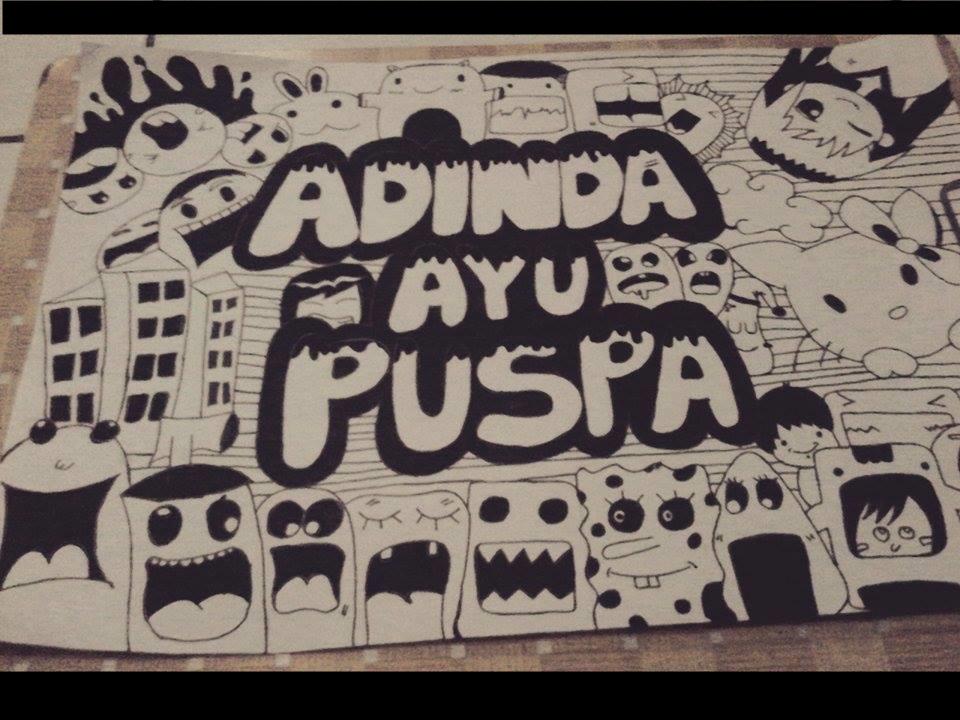 ADINDA
AYU
PUSPA